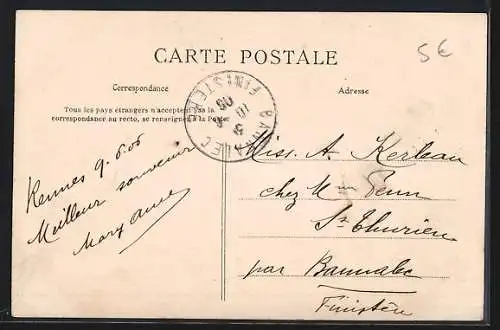 5€
CARTE POSTALE
Correspondance
Adresse
Tous les pays étrangers n'acceptent pas la
correspondance au recto, se renseigner à la Poste
BANNALEC
FINISTERE
10
05
Rennes 9.6.05
Meilleur souvenir
Mary Anne
Miss. A. Kerleau
chez Mme Penn
St Thurien
par Bannalec
Finistère